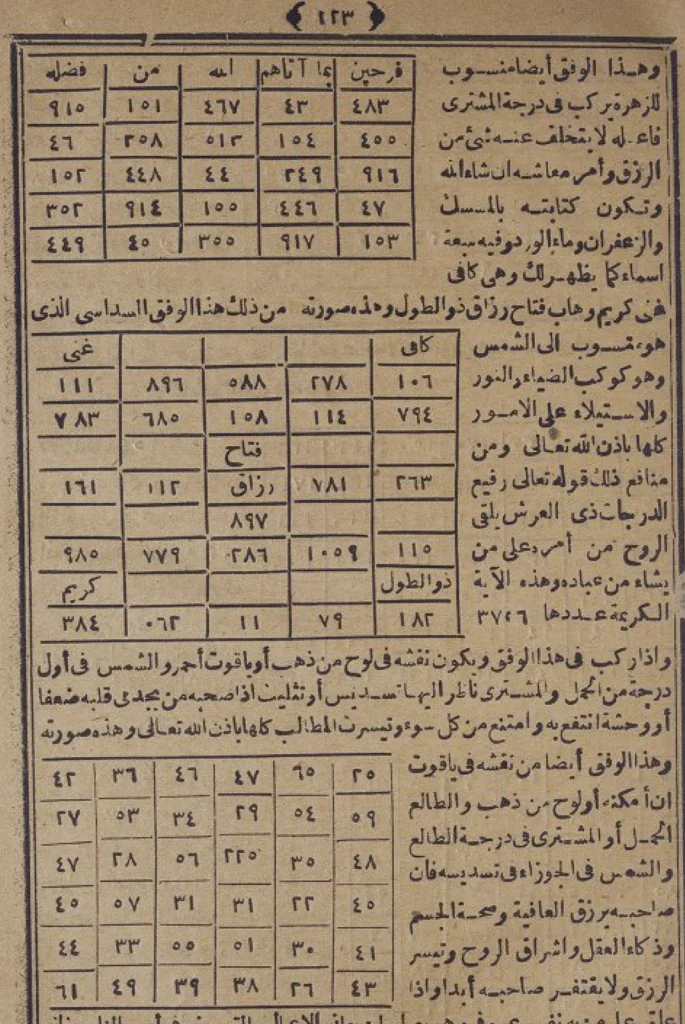 ١٢٣
وهذا الوفق أيضا منسوب
للزهرة يركب فى درجة المشترى
فاعله لا يتخلف عنه شئ من
الرزق وأمر معاشه ان شاء الله
وتكون كتابته بالمسك
والزعفران وماء الورد وفيه سبعة
اسماء كما يظهر لك وهى كافى
فرحين بما آتاهم الله من فضله
٤٨٣ ٤٣ ٤٦٧ ١٥١ ٩١٥
٤٥٥ ١٥٤ ٥١٢ ٣٥٨ ٤٦
٩١٦ ٢٤٩ ٤٤ ٤٤٨ ١٥٢
٤٧ ٤٤٦ ١٥٥ ٩١٤ ٣٥٢
١٥٣ ٩١٧ ٣٥٥ ٤٥ ٤٤٩
غنى كريم وهاب فتاح رزاق ذو الطول وهذه صورته من ذلك هذا الوفق السداسى الذى
هو منسوب الى الشمس
وهو كوكب الضياء والنور
والاستيلاء على الامور
كلها باذن الله تعالى ومن
منافع ذلك قوله تعالى رفيع
الدرجات ذى العرش يلقى
الروح من أمره على من
يشاء من عباده وهذه الآية
الكريمة عددها ٣٧٢٦
كافى غنى
١٠٦ ٢٧٨ ٥٨٨ ٨٩٦ ١١١
٧٩٤ ١١٤ ١٥٨ ٦٨٥ ٧٨٣
فتاح
٢٦٣ ٧٨١ رزاق ١١٢ ١٦١
٨٩٧
١١٥ ١٠٥٩ ٢٨٦ ٧٧٩ ٩٨٥
ذو الطول كريم
١٨٢ ٧٩ ١١ ٠٦٢ ٣٨٤
واذا ركب فى هذا الوفق ويكون نقشه فى لوح من ذهب أو ياقوت أحمر والشمس فى أول
درجة من الحمل والمشترى ناظر اليها تسديس أو تثليث اذا صحبه من يجد فى قلبه ضعفا
أو وحشة انتفع به وامتنع من كل سوء وتيسرت المطالب كلها باذن الله تعالى وهذه صورته
وهذا الوفق أيضا من نقشه فى ياقوت
ان أمكنه أو لوح من ذهب والطالع
الحمل أو المشترى فى درجة الطالع
والشمس فى الجوزاء فى تسديسه فان
صاحبه يرزق العافية وصحة الجسم
وذكاء العقل واشراق الروح وتيسر
الرزق ولا يفتقر صاحبه أبدا واذا
٢٥ ٦٥ ٤٧ ٤٦ ٣٦ ٤٢
٥٩ ٥٤ ٢٩ ٣٤ ٥٣ ٢٧
٤٨ ٣٥ ٢٢٥ ٥٦ ٢٨ ٤٧
٤٥ ٢٢ ٣١ ٣١ ٥٧ ٤٥
٤١ ٣٠ ٥١ ٥٥ ٣٣ ٤٤
٤٣ ٢٦ ٣٨ ٣٩ ٤٩ ٦١